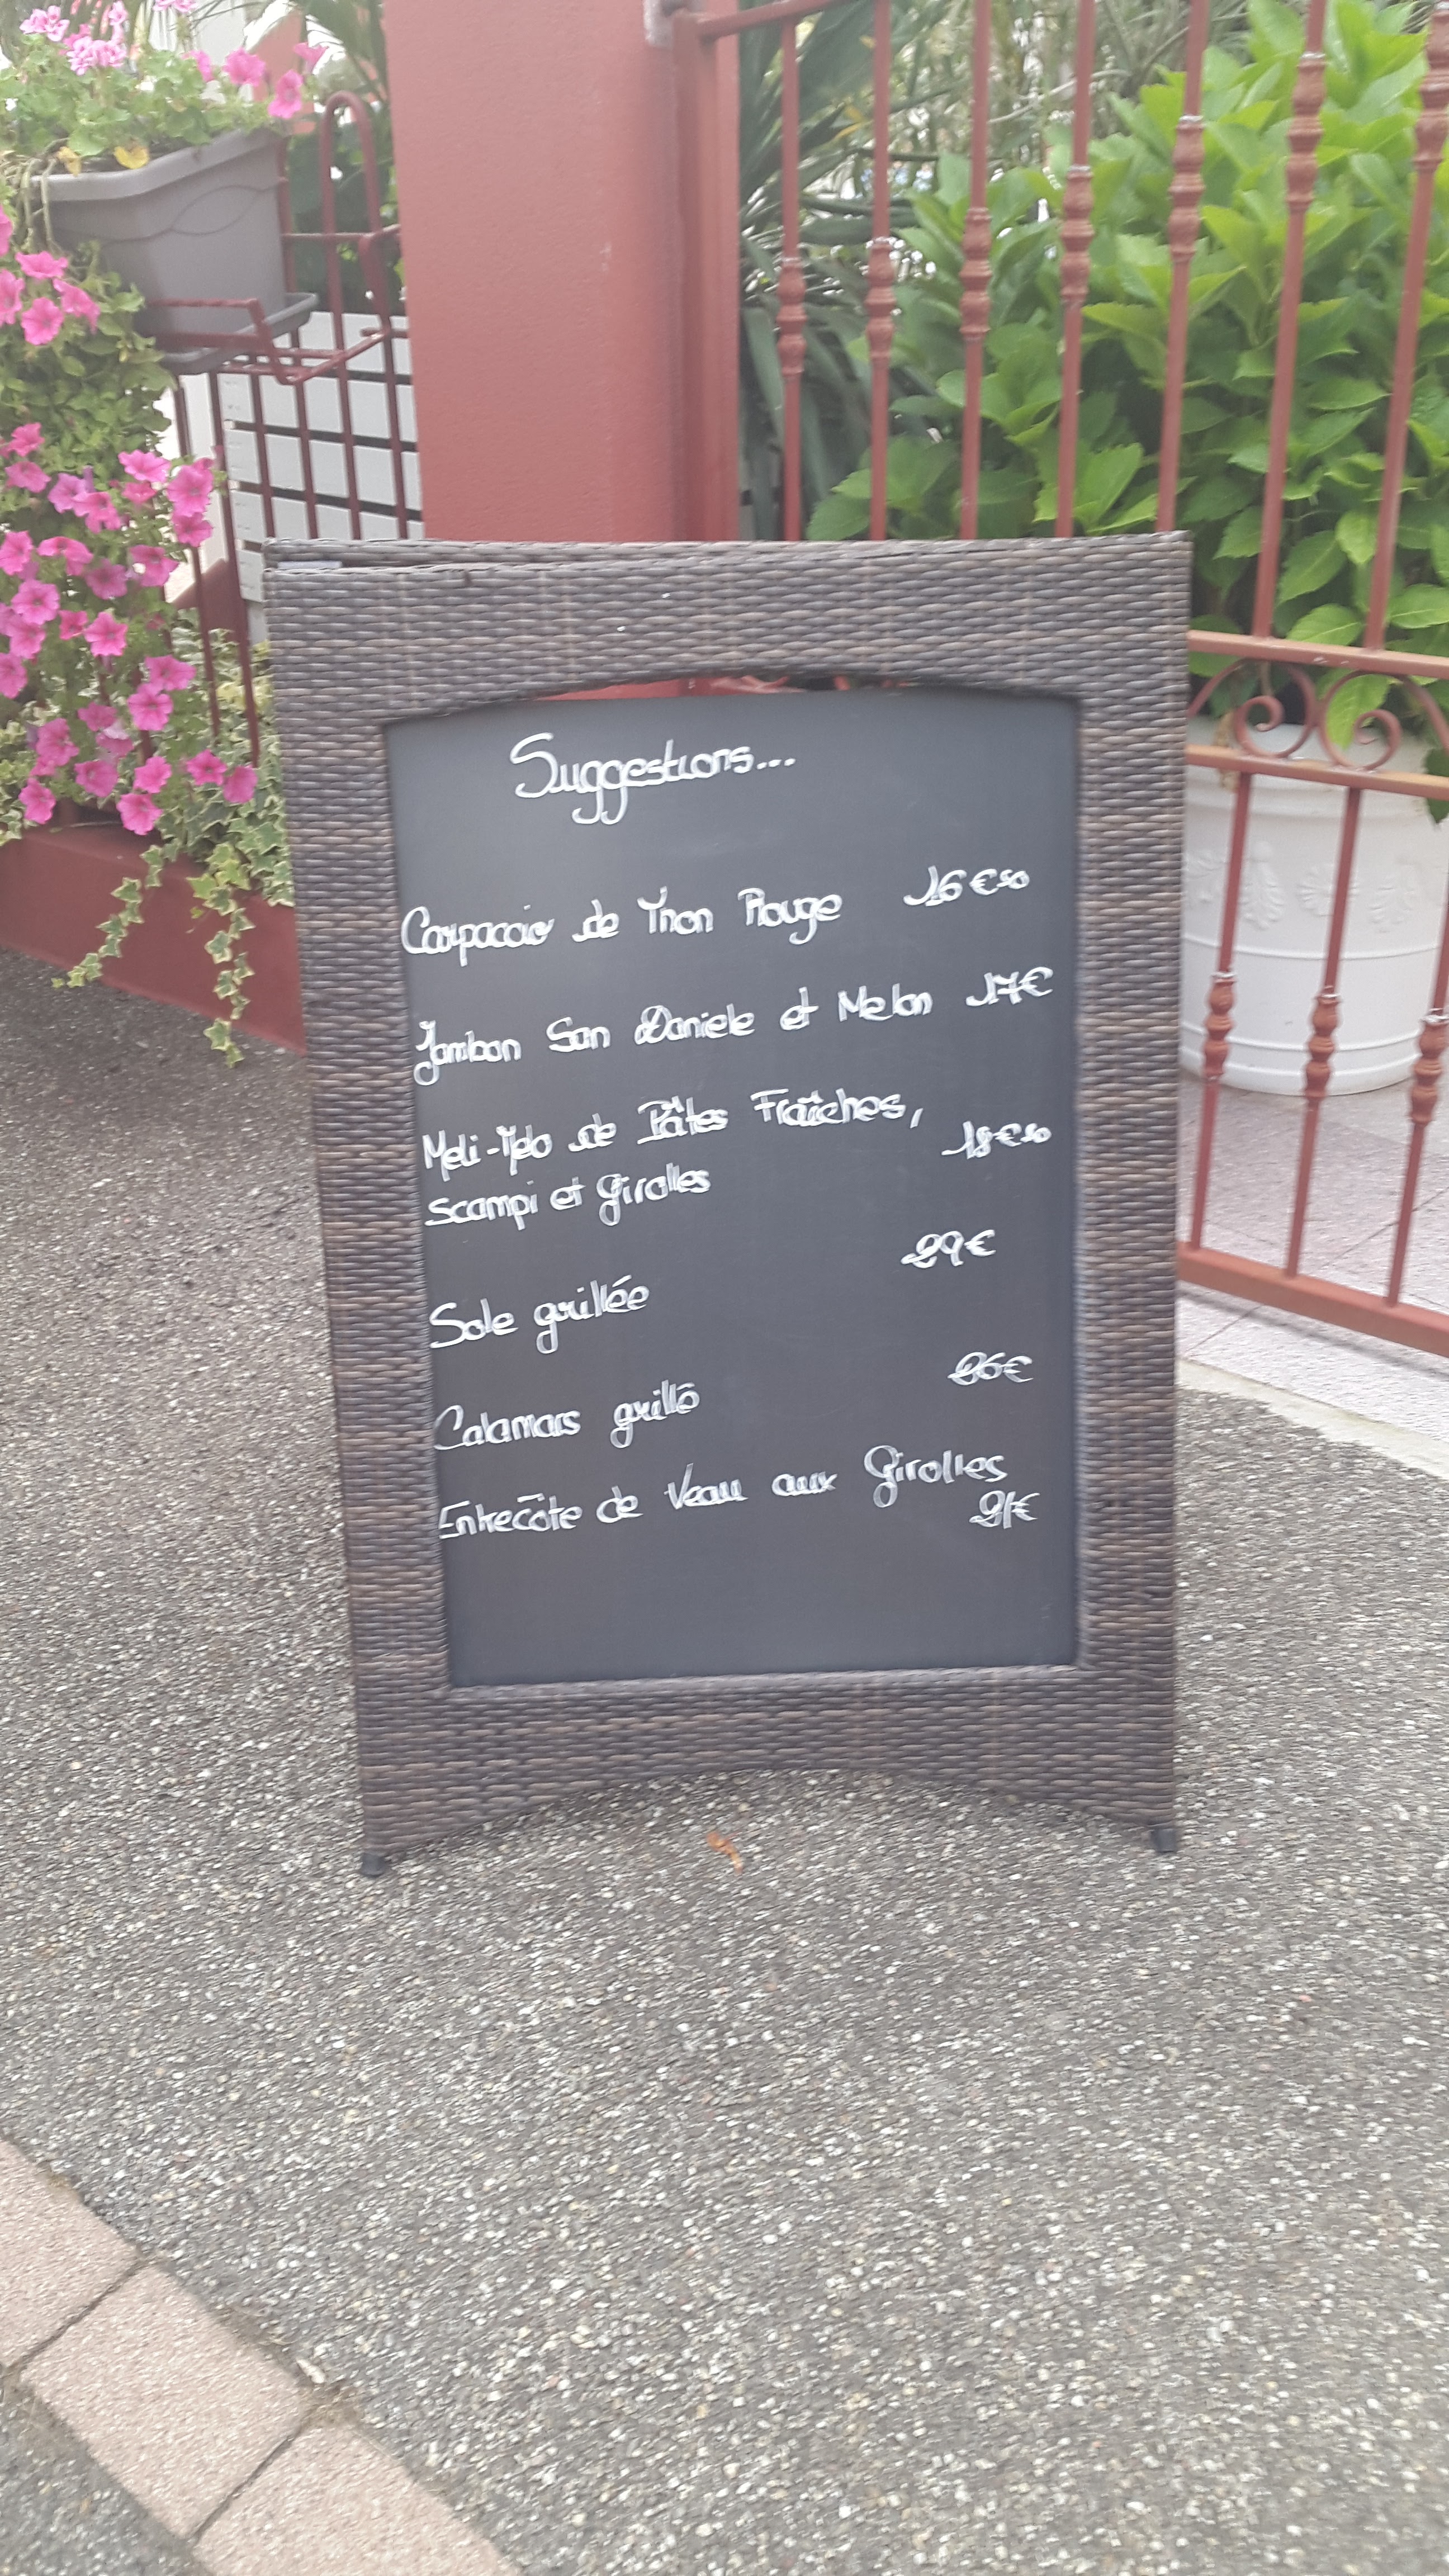 Suggestions...
Carpaccio de Thon Rouge 16€50
Jambon San Daniele et Melon 17€
Meli-Melo de Pâtes Fraîches,
Scampi et Girolles 18€50
Sole grillée 29€
Calamars grillé 26€
Entrecôte de Veau aux Girolles
21€